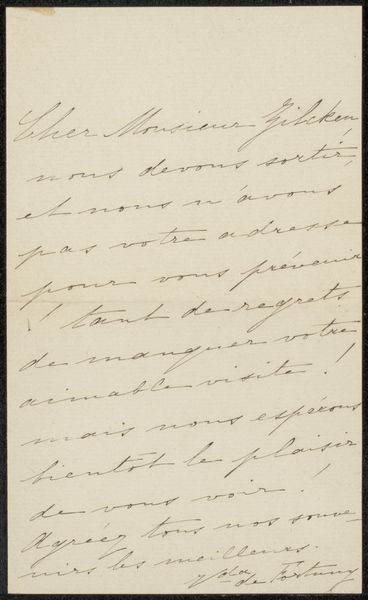 Cher Monsieur Zilcken
nous devons sortir,
et nous n'avons
pas votre adresse
pour vous prévenir
! tant de regrets
de manquer votre
aimable visite !
mais nous espérons
bientôt le plaisir
de vous voir !
Agréez tous nos souve-
nirs les meilleurs.
Vda de Fortuny